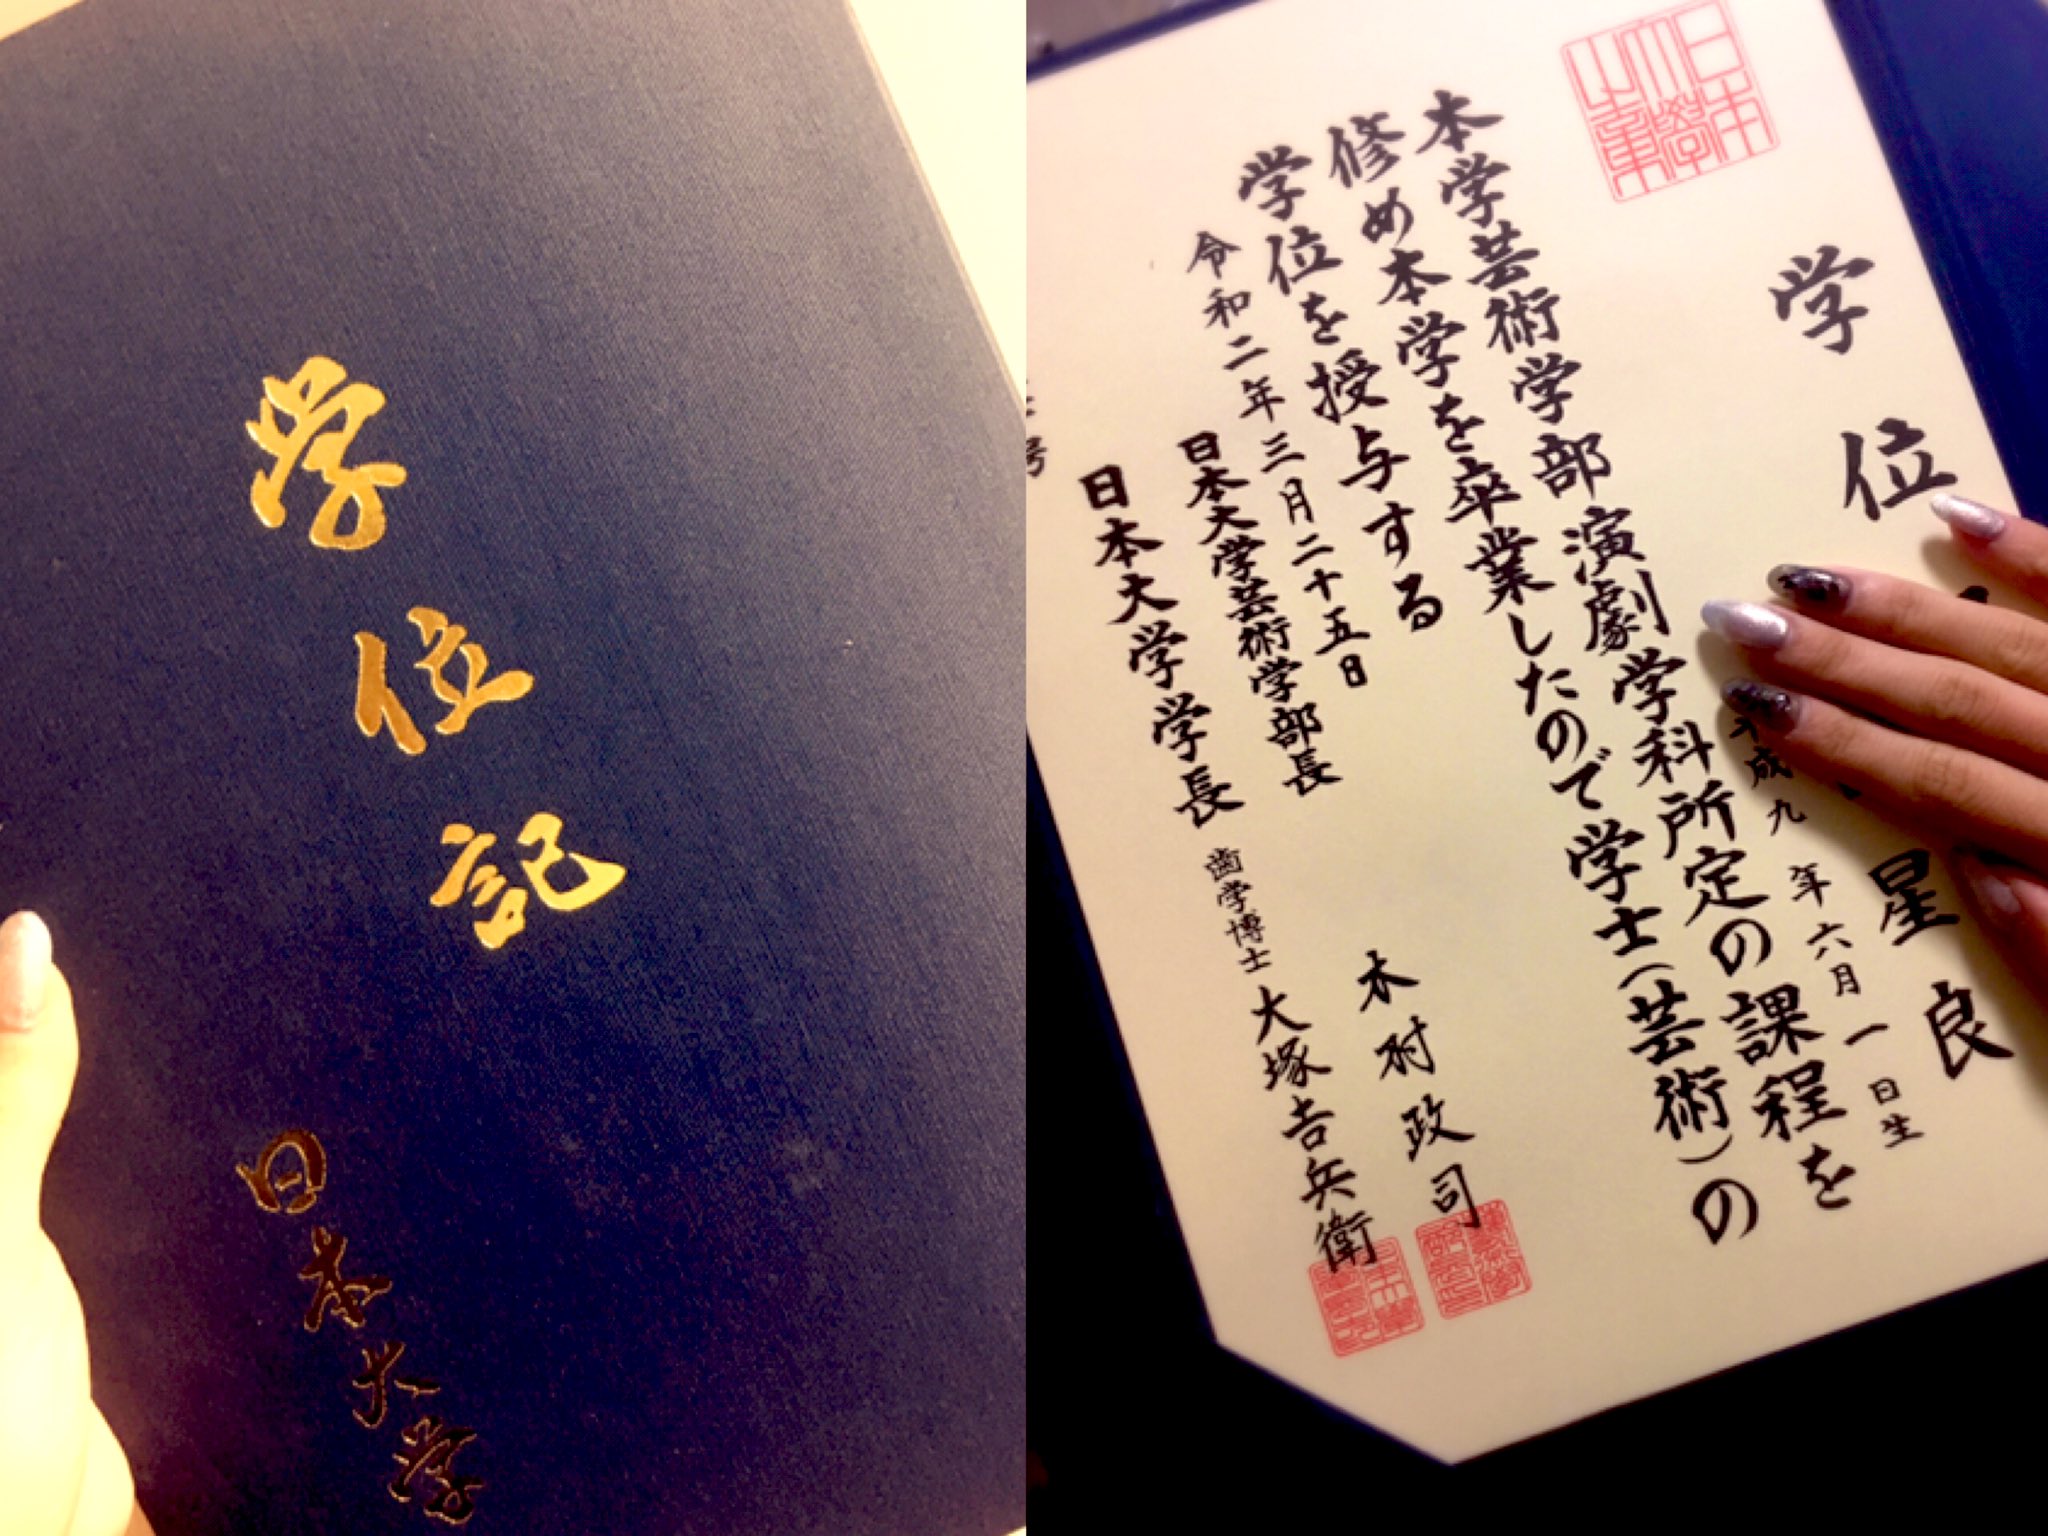 学位記
日本大学
日本大学之章
学位
星良
平成九年六月一日生
本学芸術学部演劇学科所定の課程を
修め本学を卒業したので学士(芸術)の
学位を授与する
令和二年三月二十五日
日本大学芸術学部長 木村政司
日本大学学長 歯学博士 大塚吉兵衛
号